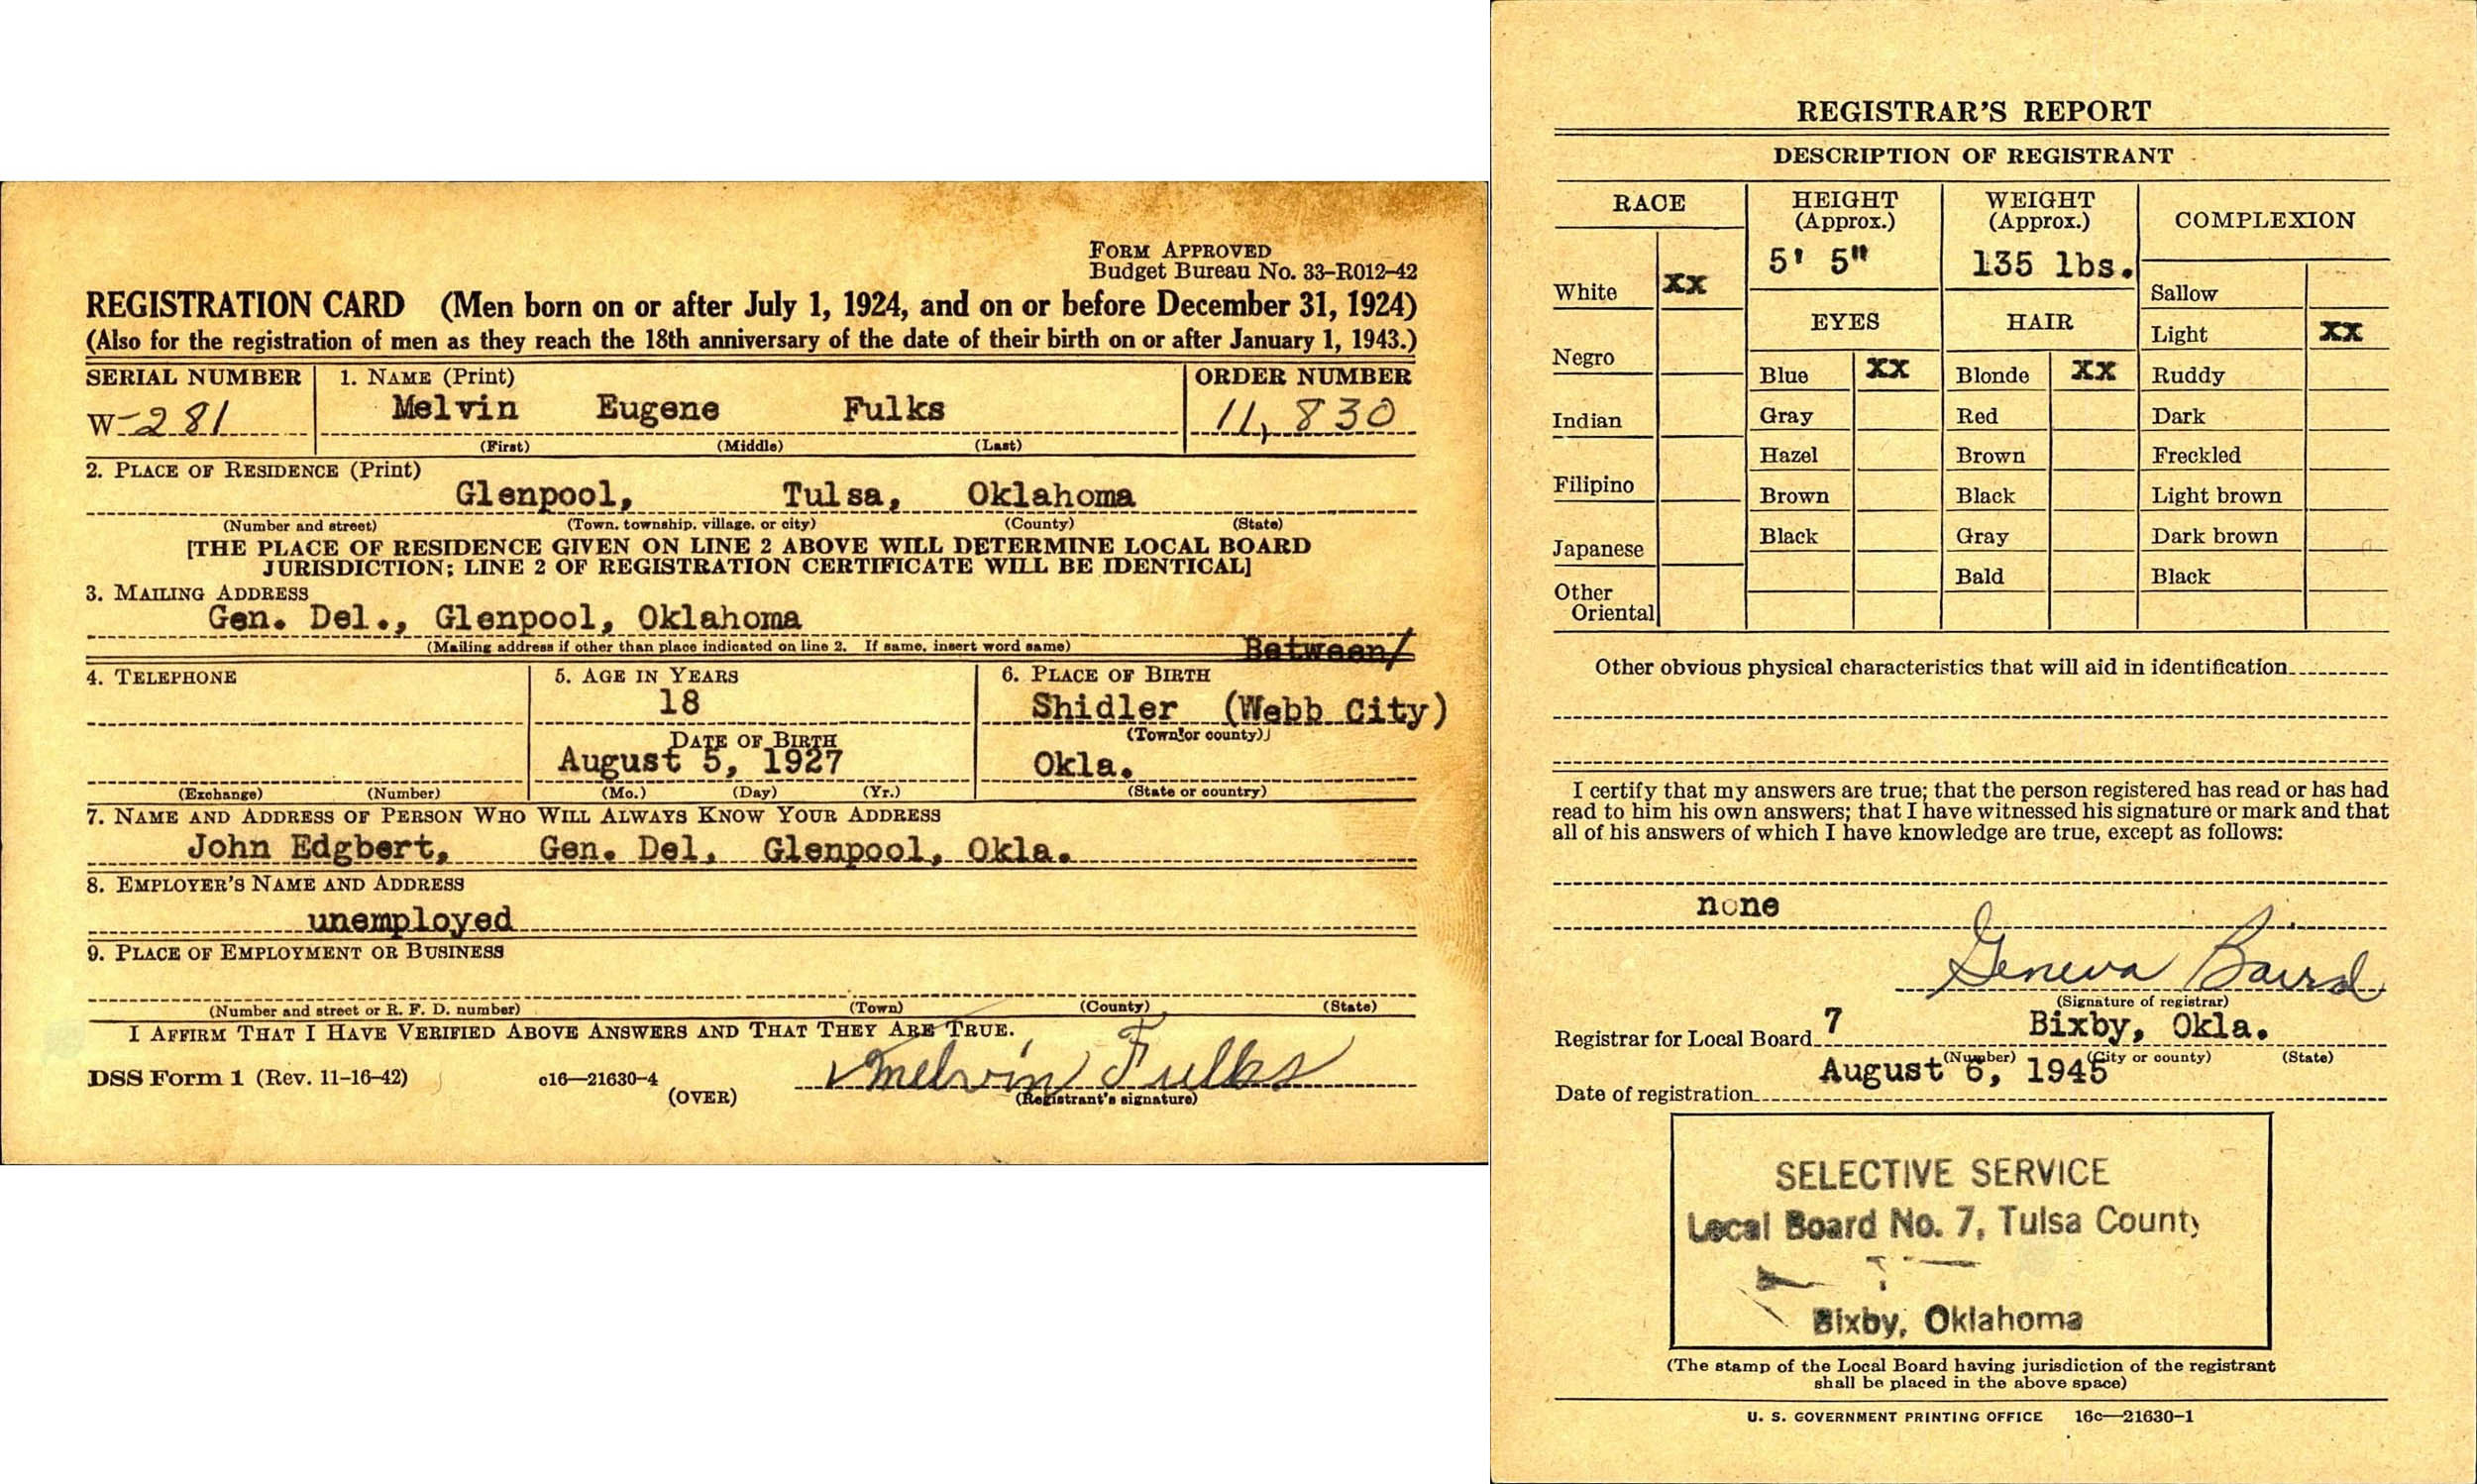 FORM APPROVED
Budget Bureau No. 33-R012-42
REGISTRATION CARD (Men born on or after July 1, 1924, and on or before December 31, 1924)
(Also for the registration of men as they reach the 18th anniversary of the date of their birth on or after January 1, 1943.)
SERIAL NUMBER 1. NAME (Print) ORDER NUMBER
W-281 Melvin Eugene Fulks 11,830
(First) (Middle) (Last)
2. PLACE OF RESIDENCE (Print)
Glenpool, Tulsa, Oklahoma
(Number and street) (Town, township, village, or city) (County) (State)
[THE PLACE OF RESIDENCE GIVEN ON LINE 2 ABOVE WILL DETERMINE LOCAL BOARD
JURISDICTION; LINE 2 OF REGISTRATION CERTIFICATE WILL BE IDENTICAL]
3. MAILING ADDRESS
Gen. Del., Glenpool, Oklahoma
(Mailing address if other than place indicated on line 2. If same, insert word same) Between/
4. TELEPHONE 5. AGE IN YEARS 6. PLACE OF BIRTH
18 Shidler (Webb City)
DATE OF BIRTH (Town or county)
August 5, 1927 Okla.
(Exchange) (Number) (Mo.) (Day) (Yr.) (State or country)
7. NAME AND ADDRESS OF PERSON WHO WILL ALWAYS KNOW YOUR ADDRESS
John Edgbert, Gen. Del, Glenpool, Okla.
8. EMPLOYER'S NAME AND ADDRESS
unemployed
9. PLACE OF EMPLOYMENT OR BUSINESS
(Number and street or R. F. D. number) (Town) (County) (State)
I AFFIRM THAT I HAVE VERIFIED ABOVE ANSWERS AND THAT THEY ARE TRUE.
Melvin Fulks
DSS Form 1 (Rev. 11-16-42) c16—21630-4
(OVER) (Registrant's signature)
REGISTRAR'S REPORT
DESCRIPTION OF REGISTRANT
RACE HEIGHT (Approx.) WEIGHT (Approx.) COMPLEXION
5' 5" 135 lbs.
White xx Sallow
EYES HAIR Light xx
Negro Blue xx Blonde xx Ruddy
Indian Gray Red Dark
Hazel Brown Freckled
Filipino Brown Black Light brown
Japanese Black Gray Dark brown
Other Oriental Bald Black
Other obvious physical characteristics that will aid in identification
I certify that my answers are true; that the person registered has read or has had
read to him his own answers; that I have witnessed his signature or mark and that
all of his answers of which I have knowledge are true, except as follows:
none
Geneva Baird
(Signature of registrar)
Registrar for Local Board 7 Bixby, Okla.
(Number) (City or county) (State)
Date of registration August 6, 1945
SELECTIVE SERVICE
Local Board No. 7, Tulsa County
Bixby, Oklahoma
(The stamp of the Local Board having jurisdiction of the registrant
shall be placed in the above space)
U. S. GOVERNMENT PRINTING OFFICE 16c—21630-1